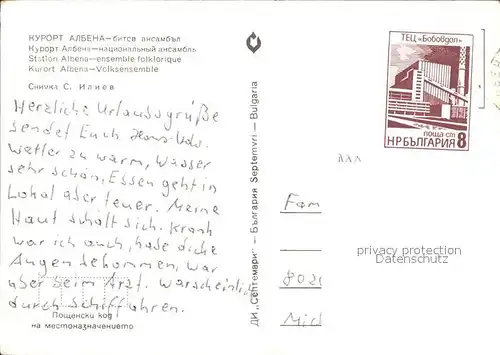 КУРОРТ АЛБЕНА—битов ансамбъл
Курорт Албена—национальный ансамбль
Station Albena—ensemble folklorique
Kurort Albena—Volksensemble
Снимка С. Илиев
Herzliche Urlaubsgrüße
sendet Euch Hans-Udo.
Wetter zu warm, Wasser
sehr schön, Essen geht in
Lokal aber teuer. Meine
Haut schält sich. Krank
war ich auch, habe dicke
Augen bekommen, war
aber beim Arzt. Warscheinlich
durch Schiffahren.
Пощенски код
на местоназначението
ДИ „Септември" — България Septemvri — Bulgaria
ТЕЦ „Бобовдол"
поща ст 8
НР БЪЛГАРИЯ
Fam
802
Mic
privacy protection
Datenschutz